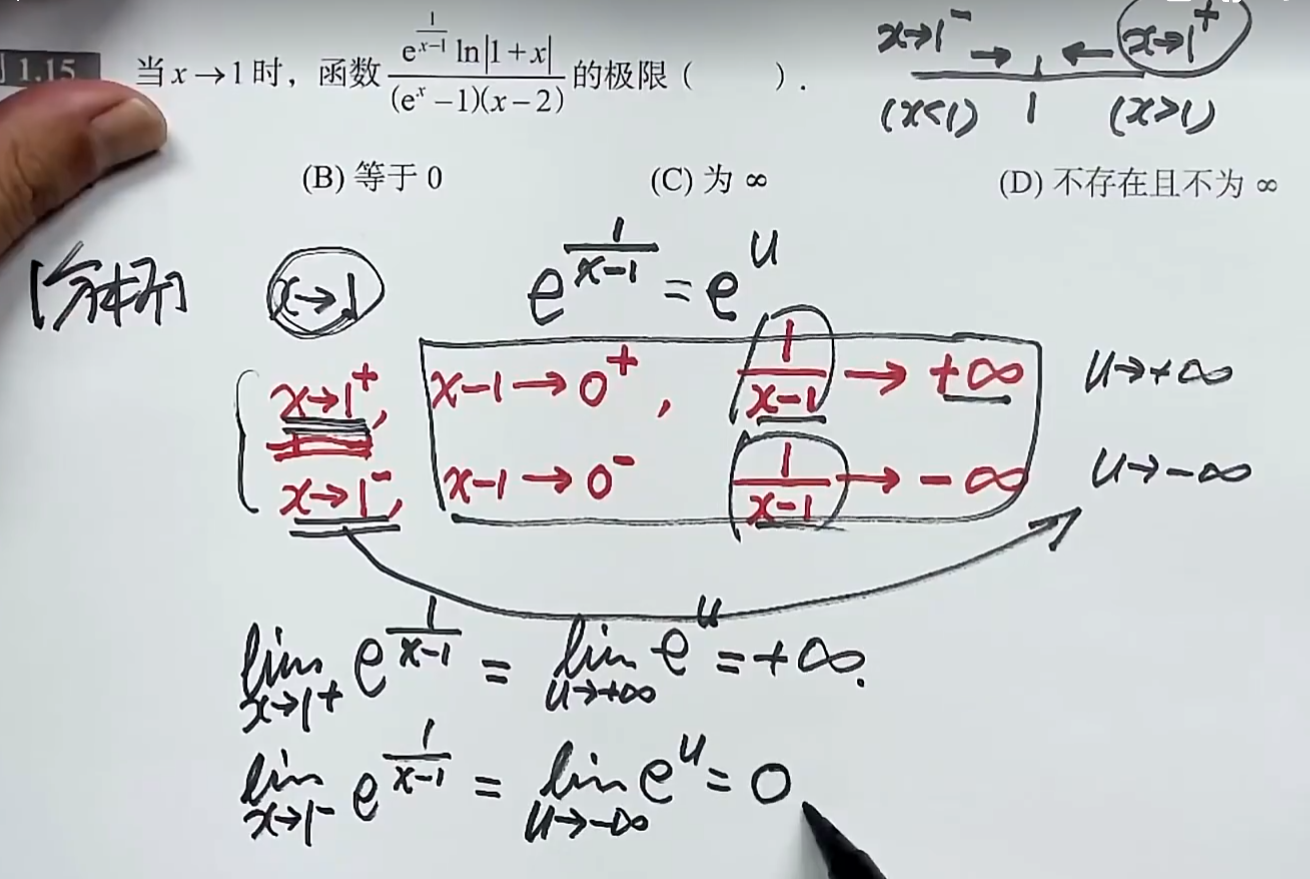 1.15 当 x→1 时，函数 \frac{e^{\frac{1}{x-1}} ln|1+x|}{(e^x-1)(x-2)} 的极限（ ）.
x→1⁻ → ← x→1⁺
(x<1) 1 (x>1)
(B) 等于 0 (C) 为 ∞ (D) 不存在且不为 ∞
x→1 e^{\frac{1}{x-1}} = e^u
x→1⁺, x-1→0⁺, \frac{1}{x-1} → +∞ u→+∞
x→1⁻, x-1→0⁻ \frac{1}{x-1} → -∞ u→-∞
lim_{x→1⁺} e^{\frac{1}{x-1}} = lim_{u→+∞} e^u = +∞.
lim_{x→1⁻} e^{\frac{1}{x-1}} = lim_{u→-∞} e^u = 0